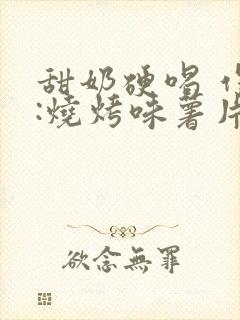 甜奶硬唱
:燒烤味薯片
欲念無罪